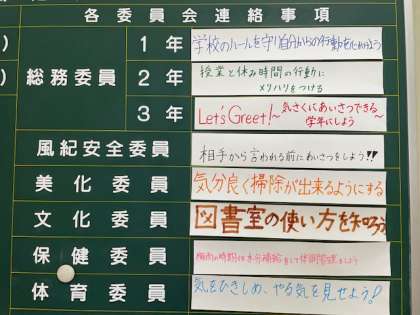 各委員会連絡事項
総務委員
1年 学校のルールを守り自分からの行動を心がけよう
2年 授業と休み時間の行動に
メリハリをつける
3年 Let's Greet! ~気さくにあいさつできる
学年にしよう~
風紀安全委員 相手から言われる前にあいさつをしよう!!
美化委員 気分良く掃除が出来るようにする
文化委員 図書室の使い方を知ろう
保健委員 梅雨の時期は水分補給をして体調管理をしよう
体育委員 気をひきしめ、やる気を見せよう!